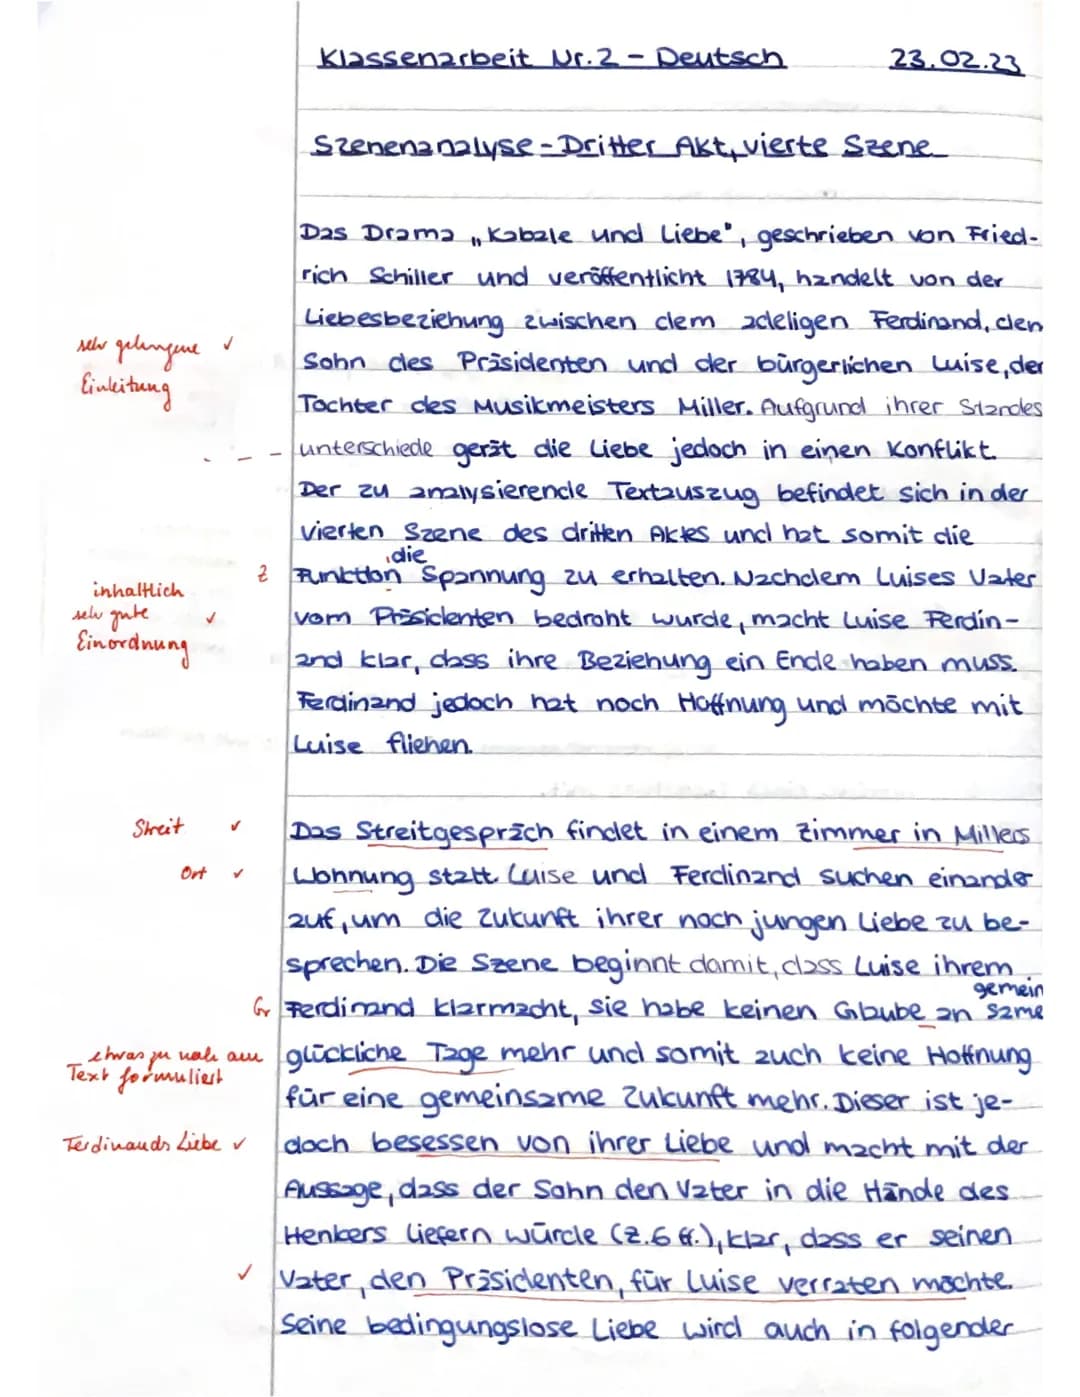 Klassenarbeit Nr. 2 - Deutsch 23.02.23
Szenenanalyse - Dritter Akt, vierte Szene
Das Drama „Kabale und Liebe", geschrieben von Fried-
rich Schiller und veröffentlicht 1784, handelt von der
Liebesbeziehung zwischen dem adeligen Ferdinand, den
sehr gelungene ✓ Sohn des Präsidenten und der bürgerlichen Luise, der
Einleitung
Tochter des Musikmeisters Miller. Aufgrund ihrer Standes
unterschiede gerät die Liebe jedoch in einen Konflikt.
Der zu analysierende Textauszug befindet sich in der
vierten Szene des dritten Aktes und hat somit die
, die
Z Funktion Spannung zu erhalten. Nachdem Luises Vater
inhaltlich
sehr gute ✓ vom Präsidenten bedroht wurde, macht Luise Ferdin-
Einordnung
and klar, dass ihre Beziehung ein Ende haben muss.
Ferdinand jedoch hat noch Hoffnung und möchte mit
Luise fliehen.
Streit ✓ Das Streitgespräch findet in einem Zimmer in Millers
Ort ✓ Wohnung statt. Luise und Ferdinand suchen einander
auf, um die Zukunft ihrer noch jungen Liebe zu be-
sprechen. Die Szene beginnt damit, dass Luise ihrem
gemein
Gr Ferdinand klarmacht, sie habe keinen Glaube an same
etwas zu nah am glückliche Tage mehr und somit auch keine Hoffnung
Text formuliert
für eine gemeinsame Zukunft mehr. Dieser ist je-
Ferdinands Liebe ✓ doch besessen von ihrer Liebe und macht mit der
Aussage, dass der Sohn den Vater in die Hände des
Henkers liefern würde (Z. 6 ff.), klar, dass er seinen
✓ Vater, den Präsidenten, für Luise verraten möchte.
Seine bedingungslose Liebe wird auch in folgender